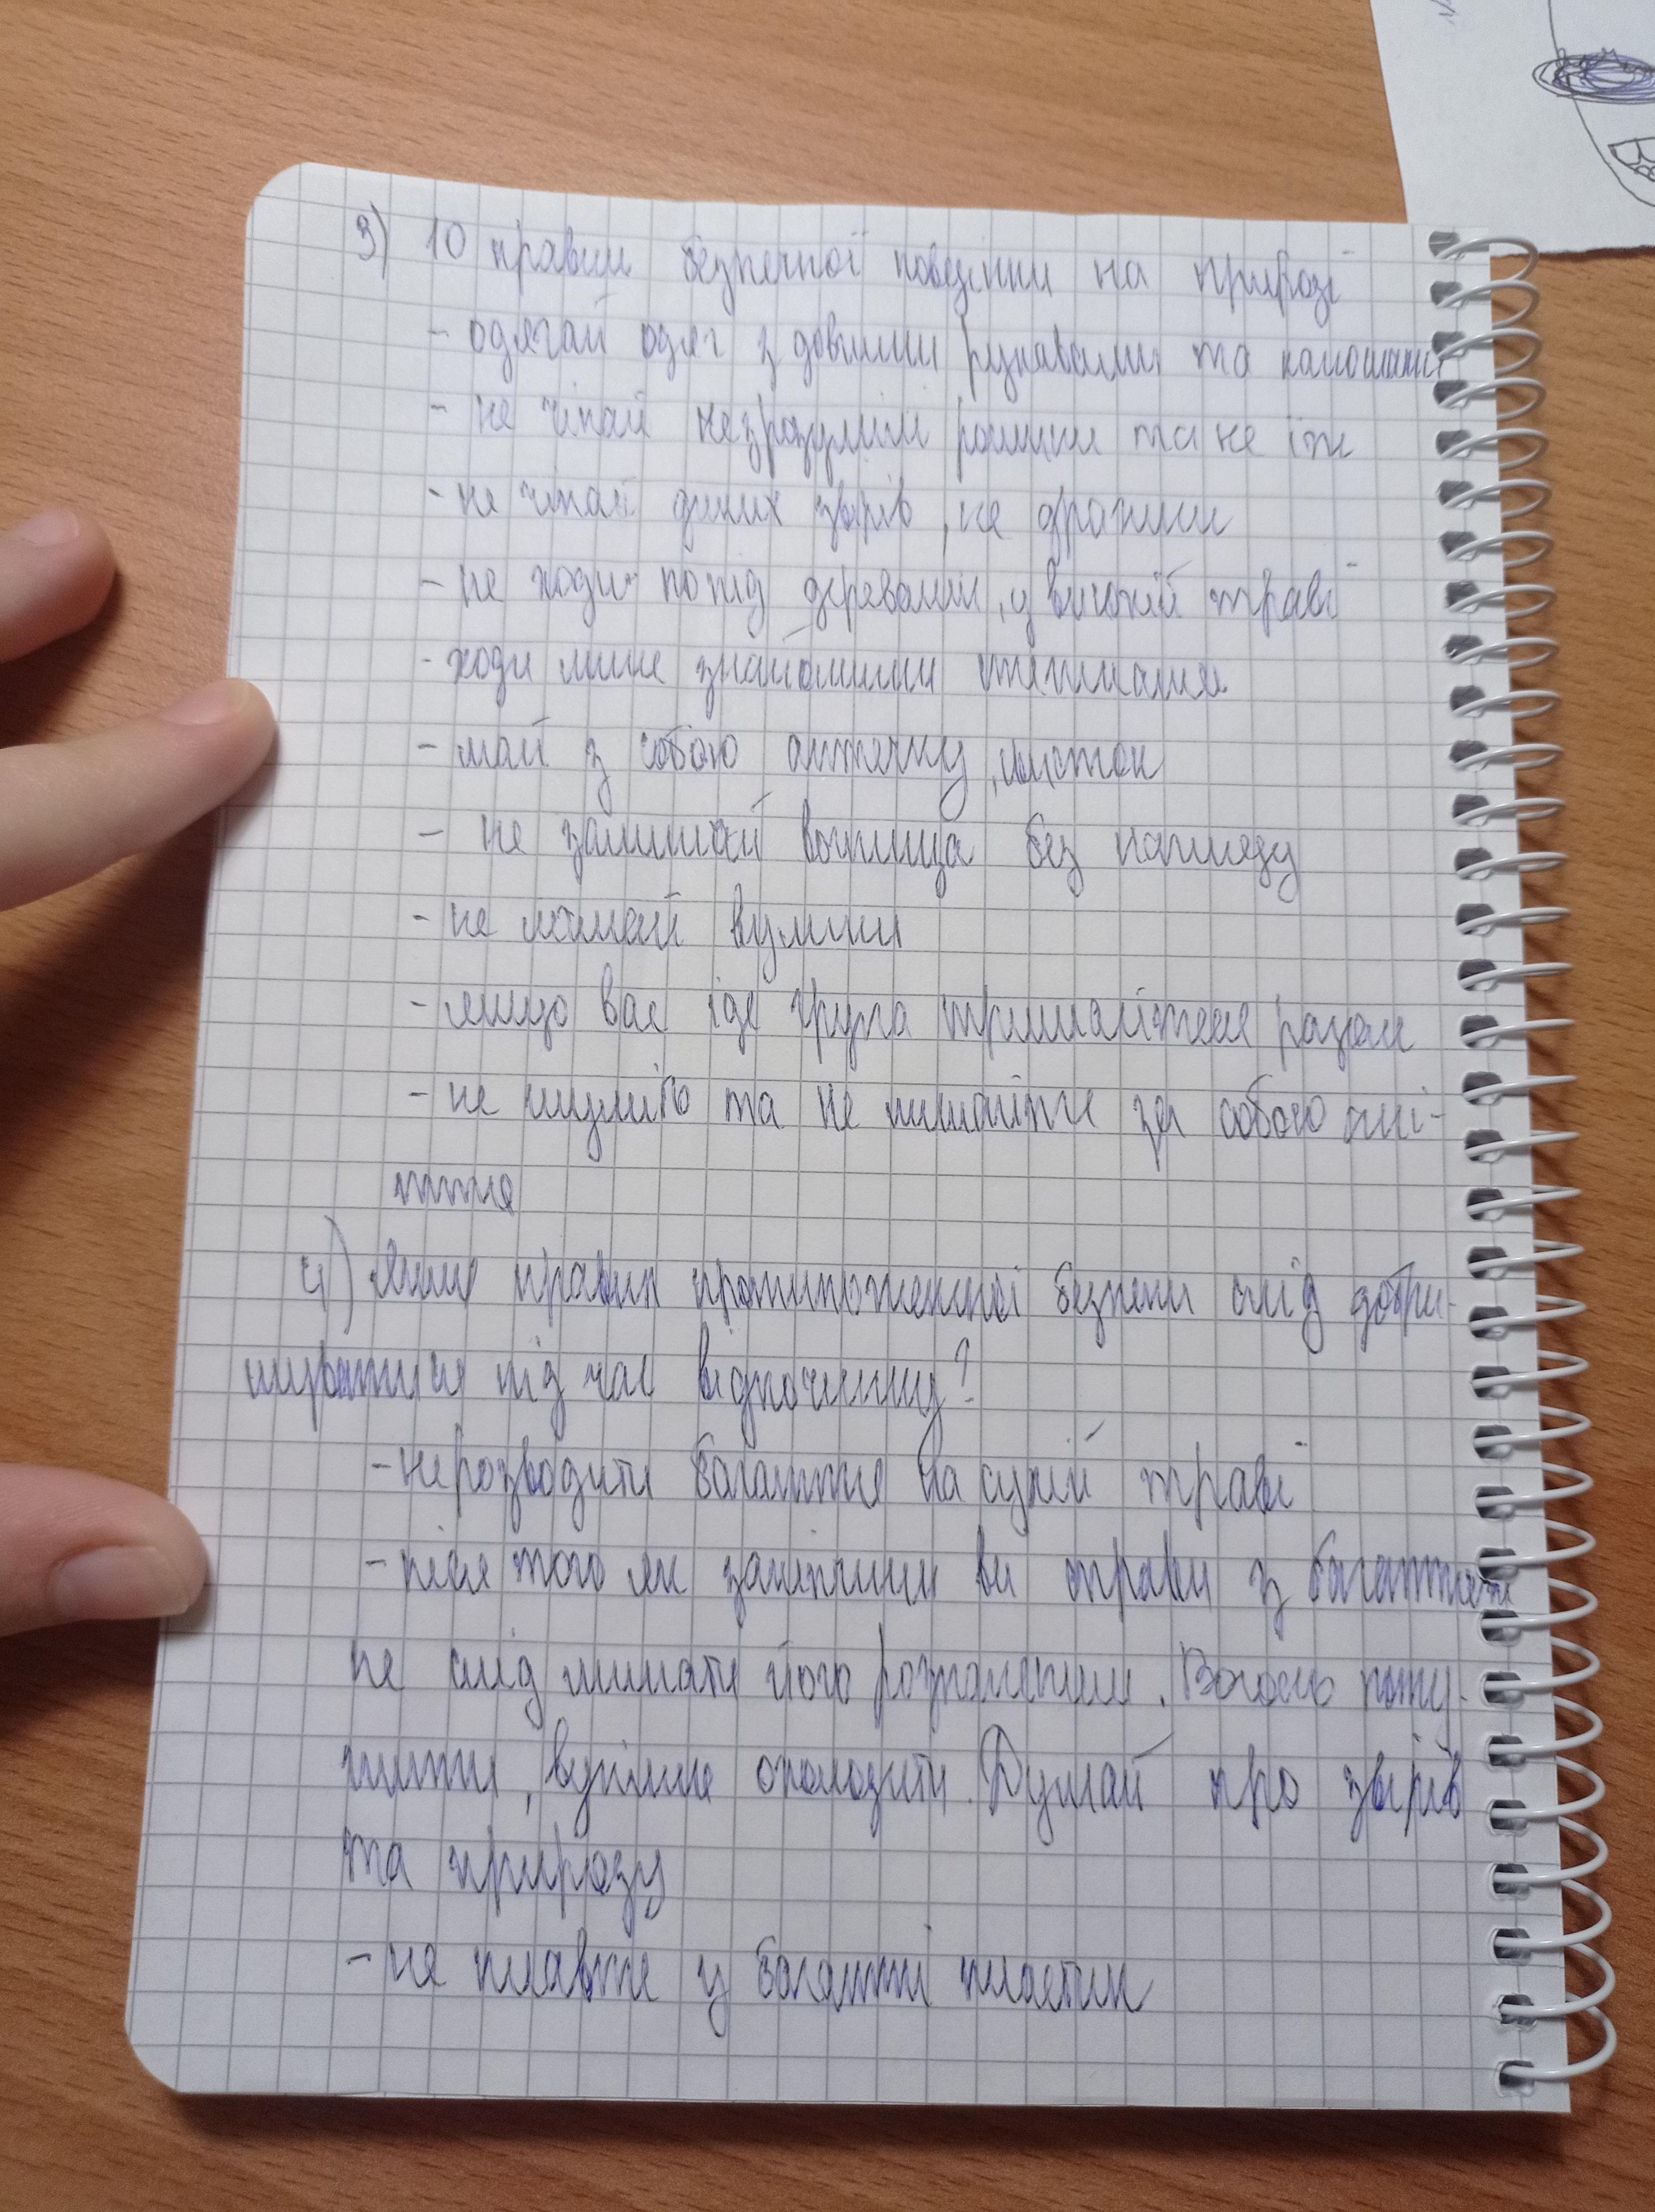 3) 10 правил безпечної поведінки на природі
- одягай одяг з довгими рукавами та калошами
- не чіпай незрозумілі рослини та не їж
- не чіпай диких звірів, не дражни
- не ходи попід деревами, у високій траві
- ходи лише знайомими стежками
- май з собою аптечку, свисток
- не залишай вогнища без нагляду
- не ламай вулики
- якщо вас іде група тримайтеся разом
- не шуміть та не лишайте за собою смі-
ття
4) Яких правил протипожежної безпеки слід дотри-
муватися під час відпочинку?
- не розводити багаття на сухій траві
- після того як закінчили ви справи з багаттям
не слід лишати його розпаленим. Вогонь поту-
шити, вугілля охолодити. Думай про звірів
та природу
- не плавте у багатті пластик